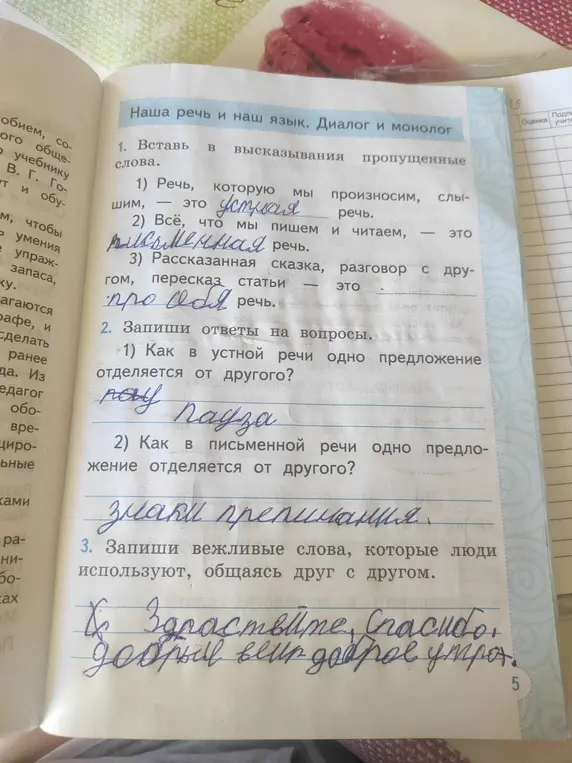 обием, со-
ого обще-
учебнику
В. Г. Го-
т и обу-
м, чтобы
умения
упраж-
запаса,
ку.
агаются
рафе, и
сделать
ранее
да. Из
едагог
обо-
вре-
циро-
льные
ками
ра-
ни-
бо-
ках
Наша речь и наш язык. Диалог и монолог
1. Вставь в высказывания пропущенные
слова.
1) Речь, которую мы произносим, слы-
шим, — это устная речь.
2) Всё, что мы пишем и читаем, — это
письменная речь.
3) Рассказанная сказка, разговор с дру-
гом, пересказ статьи — это
про себя речь.
2. Запиши ответы на вопросы.
1) Как в устной речи одно предложение
отделяется от другого?
пауза
2) Как в письменной речи одно предло-
жение отделяется от другого?
знаки препинания.
3. Запиши вежливые слова, которые люди
используют, общаясь друг с другом.
Здраствйте, Спасибо,
добрый доброе утро.
5
Оценка